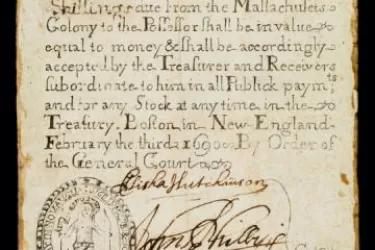 Shillings due from the Massachusets
Colony to the Possessor shall be in value
equal to money & shall be accordingly
accepted by the Treasurer and Receivers
subordinate to him in all Publick paymts
and for any Stock at any time in the
Treasury. Boston in New England
February the third 1690. By Order of
the General Court
Elisha Hutchinson
John Phillips